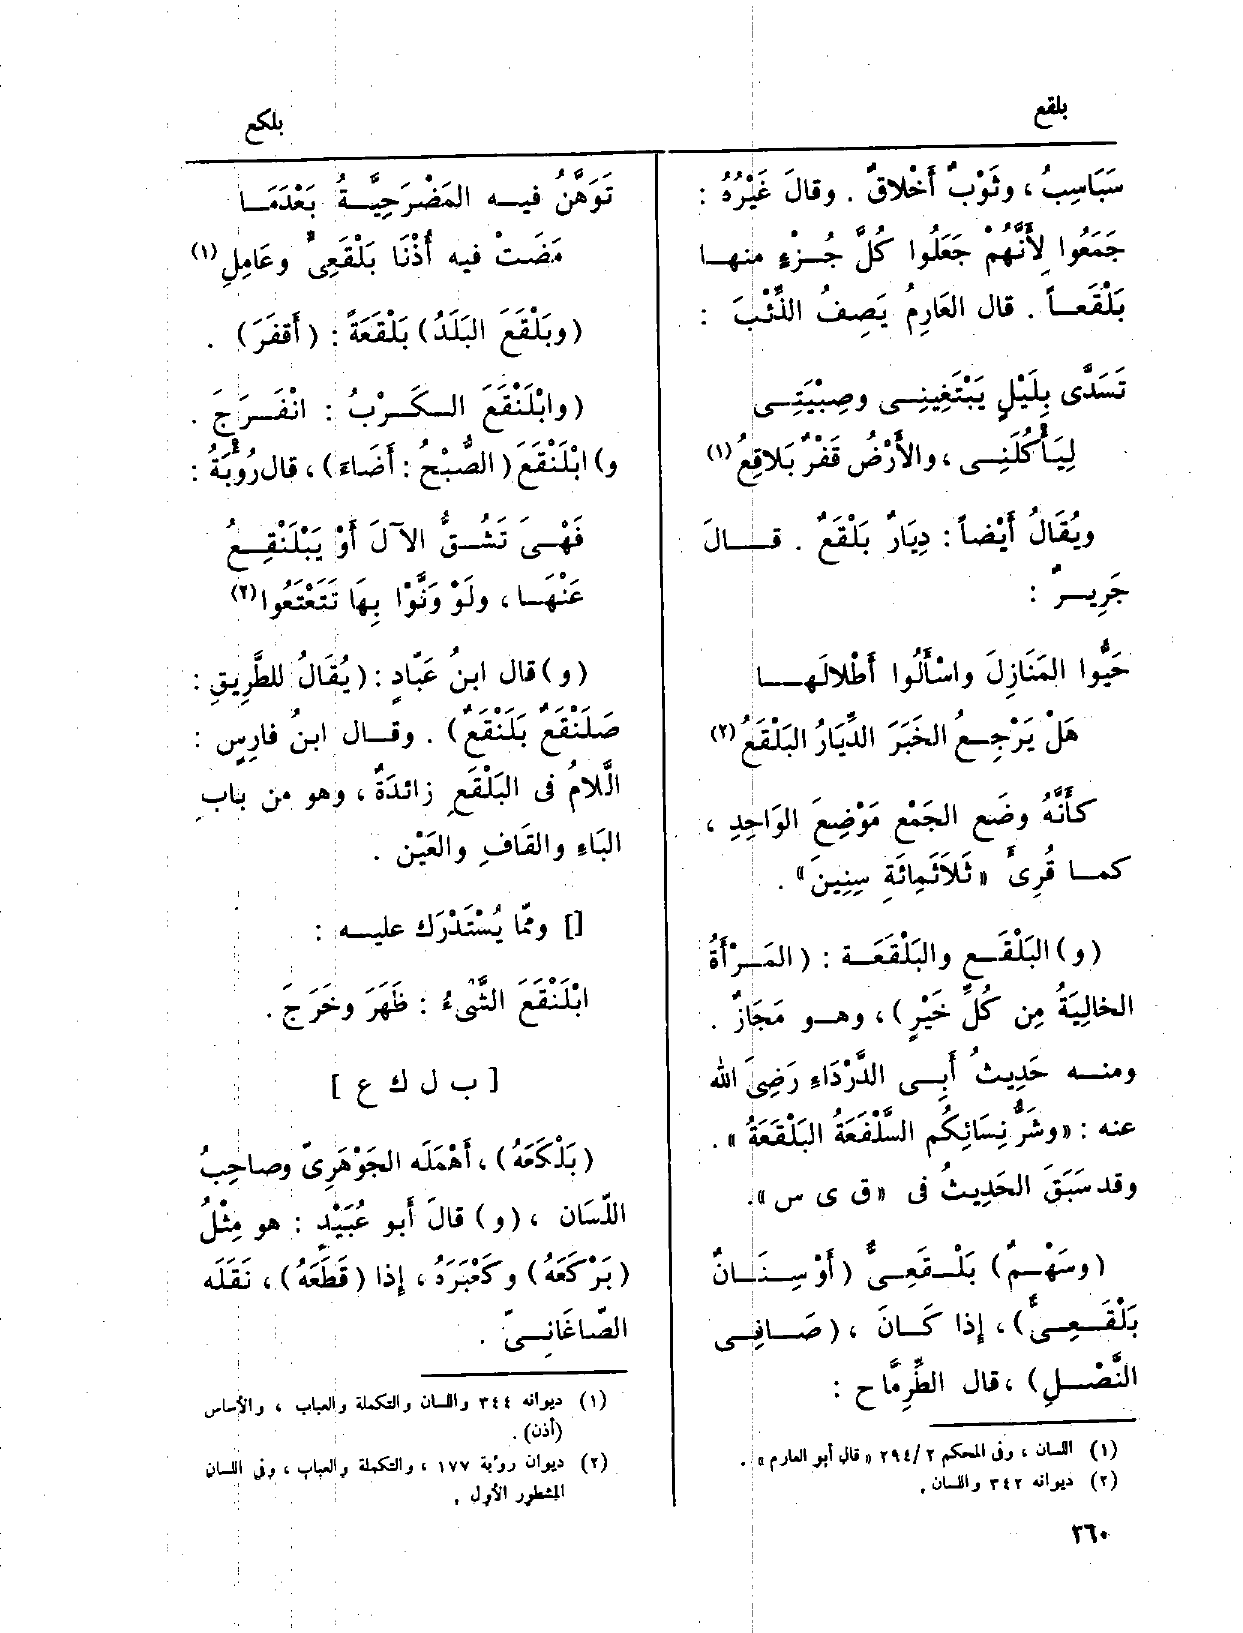 بلقع
بلكع
سَبَاسِبُ ، وثَوْبٌ أَخْلاقٌ . وقالَ غَيْرُهُ :
جَمَعُوا لِأَنَّهُمْ جَعَلُوا كُلَّ جُـزْءٍ منهـا
بَلْقَعـاً . قال العَارِمُ يَصِفُ الذِّئْبَ :
تَسَدَّى بِلَيْلٍ يَبْتَغِينِـى وصِبْيَتِـى
لِيَأْكُلَنِـى ، والأَرْضُ قَفْرٌ بَلاقِعُ (١)
ويُقَالُ أَيْضاً : دِيَارٌ بَلْقَعٌ . قـــالَ
جَرِيـرٌ :
حَيُّوا المَنَازِلَ واسْأَلُوا أَطْلالَهـــا
هَلْ يَرْجِـعُ الخَبَرَ الدِّيَارُ البَلْقَعُ (٢)
كأَنَّهُ وضَع الجَمْع مَوْضِعَ الوَاحِدِ ،
كمـا قُرِىءَ «ثَلاَثَمِائَةِ سِنِينَ» .
(و) البَلْقَـع والبَلْقَعَـة : (المَـرْأَةُ
الخالِيَةُ مِن كُلِّ خَيْرٍ) ، وهـو مَجَازٌ .
ومنـه حَدِيثُ أَبِـى الدَّرْدَاءِ رَضِىَ الله
عنه : «وشَرُّ نِسَائِكُم السَّلْفَعَةُ البَلْقَعَةُ» .
وقد سَبَقَ الحَدِيثُ فى «ق ى س» .
(وسَهْـمٌ) بَلْـقَعِـىٌّ (أَوْ سِـنَـانٌ
بَلْقَـعِـىٌّ) ، إِذا كَـانَ ، (صَـافِـى
النَّصْـلِ) ، قال الطِّرِمَّاح :
(١) اللسان ، وفى المحكم ٢٩٤/٢ «قال أبو العارم» .
(٢) ديوانه ٣٤٢ واللسان .
٣٦٠
تَوَهَّنُ فيـه المَضْرَحِيَّـةُ بَعْدَمَـا
مَضَتْ فيه أُذْنَا بَلْقَعِىٍّ وعَامِلِ (١)
(وبَلْقَعَ البَلَدُ) بَلْقَعَةً : (أَقفَرَ) .
(وابْلَنْقَعَ الـكَـرْبُ : انْفَـرَجَ .
و) ابْلَنْقَعَ (الصُّبْحُ : أَضَاءَ) ، قال رُؤْبَةُ :
فَهْـىَ تَشُـقُّ الآلَ أَوْ يَبْلَنْقِـعُ
عَنْهَـا ، ولَوْ وَنَّوْا بِهَا تَتَعْتَعُوا (٢)
(و) قال ابنُ عَبّادٍ : (يُقَالُ للطَّرِيقِ :
صَلَنْقَعٌ بَلَنْقَعٌ) . وقـال ابنُ فارِسٍ :
الَّلامُ فى البَلْقَعِ زائدَةٌ ، وهو من بابِ
البَاءِ والقَافِ والعَيْن .
[] وممّا يُسْتَدْرَك عليـه :
ابْلَنْقَعَ الشَّىءُ : ظَهَرَ وخَرَجَ .
[ ب ل ك ع ]
(بَلْكَعَهُ) ، أَهْمَلَه الجَوْهَرِىّ وصاحِبُ
اللّسَان ، (و) قالَ أبو عُبَيْدٍ : هو مِثْلُ
(بَرْكَعَهُ) وكَعْبَرَهُ ، إِذا (قَطَعَهُ) ، نَقَلَه
الصّاغَانِـىّ .
(١) ديوانه ٣٤٤ واللسان والتكملة والعباب ، والأساس
(أذن) .
(٢) ديوان رؤبة ١٧٧ ، والتكملة والعباب ، وفى اللسان
المشطور الأول .